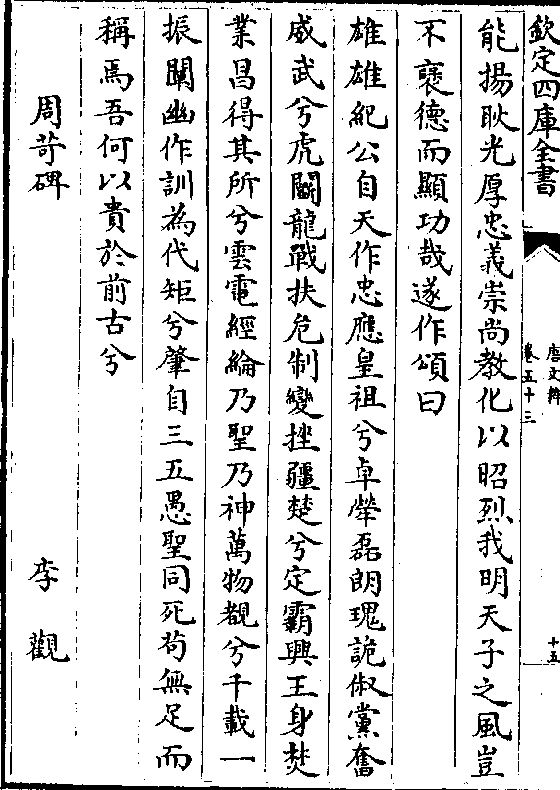 欽定四庫全書
唐文粹
卷五十三
十五
能揚耿光厚忠義崇尚教化以昭烈我明天子之風豈
不褒德而顯功哉遂作頌曰
雄雄紀公自天作忠應皇祖兮卓犖磊朗瑰詭俶黨奮
威武兮虎鬬龍戰扶危制變挫彊楚兮定霸興王身焚
業昌得其所兮雲電經綸乃聖乃神萬物覩兮千載一
振闡幽作訓為代矩兮肇自三五愚聖同死茍無足而
稱焉吾何以貴於前古兮
周苛碑
李觀